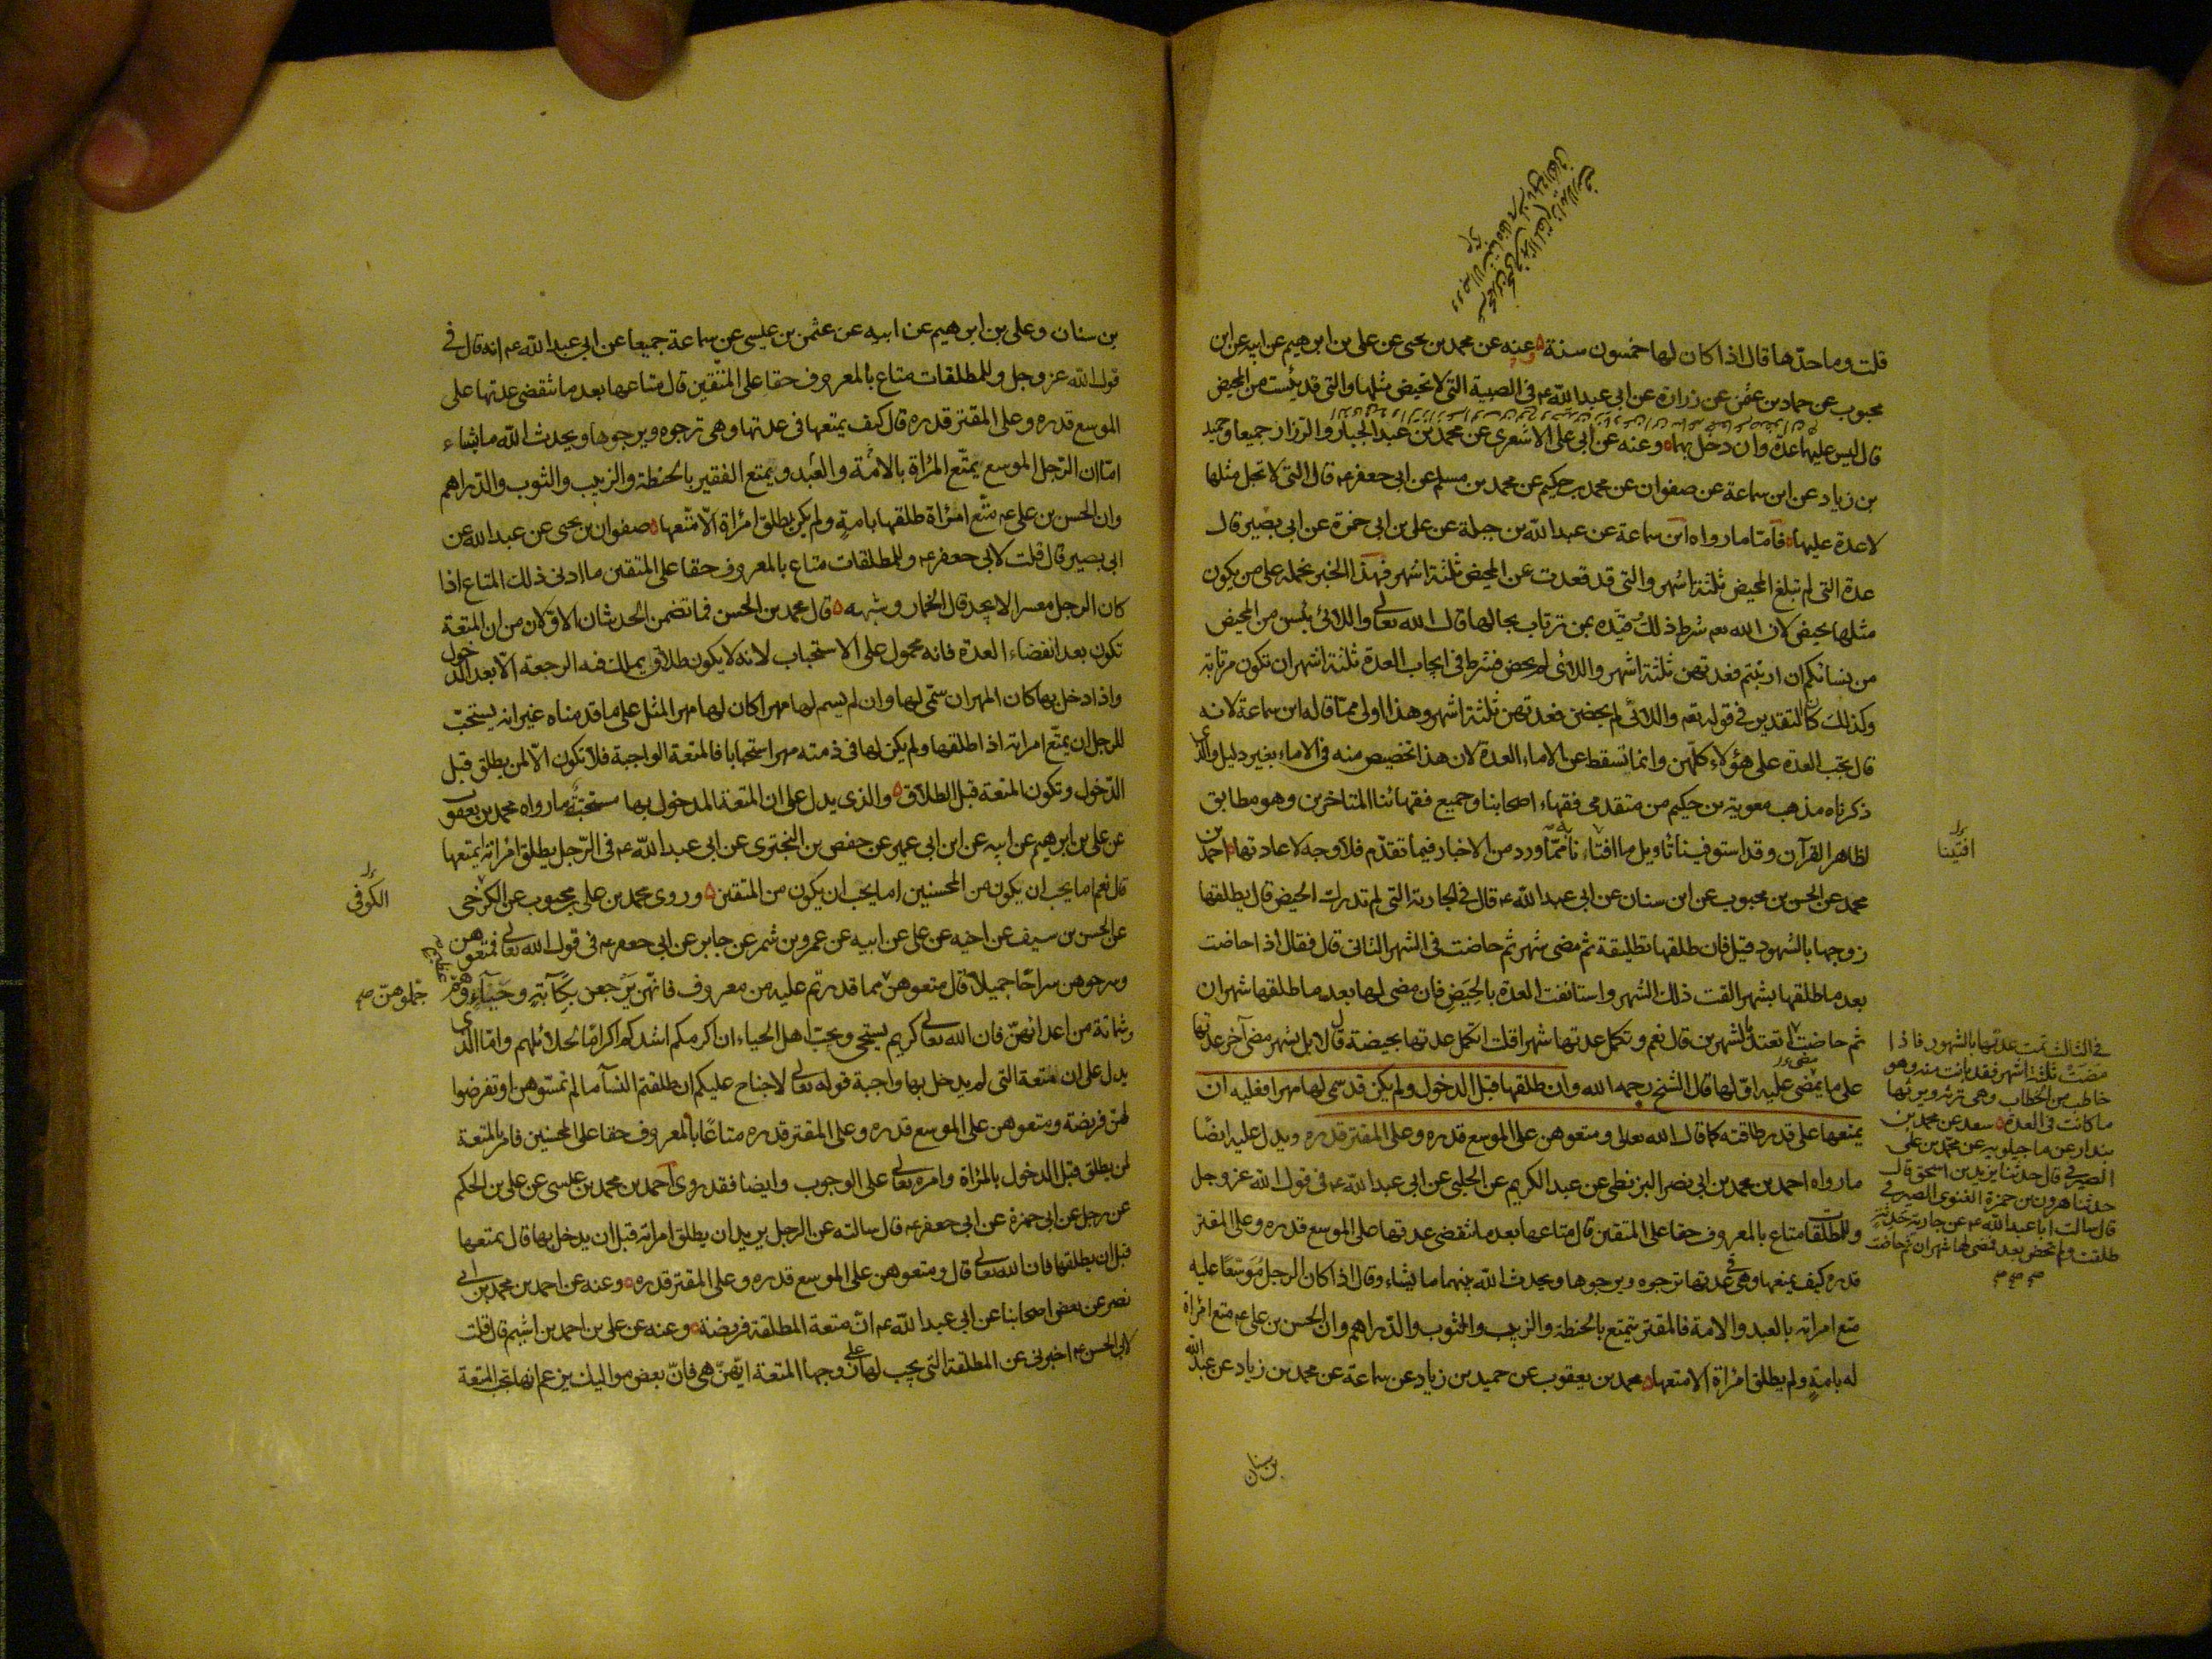 قلت وما حدّها قال اذا كان لها خمسون سنة وعنه عن محمد بن يحيى عن على بن ابرهيم عن ابيه عن ابن
محبوب عن حماد بن عثمن عن زرارة عن ابى عبد الله ع فى الصبية التى لا تحيض مثلها والتى قد يئست من المحيض
قال ليس عليها عدة وان دخل بها وعنه عن ابى على الاشعرى عن محمد بن عبد الجبار والرزاز جميعا وحميد
بن زياد عن ابن سماعة عن صفوان عن محمد بن حكيم عن محمد بن مسلم عن ابى جعفر ع قال التى لا تحبل مثلها
لا عدة عليها فأمّا ما رواه ابن سماعة عن عبد الله بن جبلة عن على بن ابى حمزة عن ابى بصير قال
عدة التى لم تبلغ المحيض ثلثة اشهر والتى قد قعدت عن المحيض ثلثة اشهر فهذا الخبر نحمله على من يكون
مثلها يحيض لان الله تعم شرط ذلك وقيّده بمن ترتاب بحالها قال الله تعالى واللائى يئسن من المحيض
من نسائكم ان ارتبتم فعدتهن ثلثة اشهر واللائى لم يحضن فشرط فى ايجاب العدة ثلثة اشهر ان تكون مرتابة
وكذلك كان التقدير فى قوله تعم واللائى لم يحضن فعدتهن ثلثة اشهر وهذا اولى ممّا قاله ابن سماعة لانه
قال تجب العدة على هؤلاء كلّهن وانما تسقط عن الاماء العدة لان هذا تخصيص منه فى الاماء بغير دليل والذى
ذكرناه مذهب معوية بن حكيم من متقدمى فقهاء اصحابنا وجميع فقهائنا المتاخرين وهو مطابق
لظاهر القرآن وقد استوفينا تأويل ما افتاءنا به ممّا ورد من الاخبار فيما تقدّم فلا وجه لاعادتها احمد بن
محمد عن الحسن بن محبوب عن ابن سنان عن ابى عبد الله ع قال فى الجارية التى لم تدرك الحيض قال يطلقها
زوجها بالشهور قيل فان طلقها تطليقة ثم مضى شهر ثم حاضت فى الشهر الثانى قال فقال اذا حاضت
بعد ما طلقها بشهر القت ذلك الشهر واستانفت العدة بالحيض فان مضى لها بعد ما طلقها شهران
ثم حاضت أتعتد بالشهرين قال نعم وتكمل عدتها شهرا قلت اتكمل عدتها بحيضة قال لا بل بشهر مضى آخر عدتها
على ما يمضى عليه اوّلها قال الشيخ رحمه الله وان طلقها قبل الدخول ولم يكن قد سمّى لها مهرا فعليه ان
يمتعها على قدر طاقته كما قال الله تعالى ومتعوهن على الموسع قدره وعلى المقتر قدره ويدل عليه ايضًا
ما رواه احمد بن محمد بن ابى نصر البزنطى عن عبد الكريم عن الحلبى عن ابى عبد الله ع فى قول الله عز وجل
وللمطلقات متاع بالمعروف حقا على المتقين قال متاعها بعد ما تنقضى عدتها على الموسع قدره وعلى المقتر
قدره كيف يمتعها وهى فى عدتها ترجوه ويرجوها ويحدث الله بينهما ما يشاء وقال اذا كان الرجل موسّعًا عليه
متع امراته بالعبد والامة فالمقتر يمتع بالحنطة والزبيب والثوب والدّراهم وان الحسن بن على ع متع امرأة
له بامةٍ ولم يطلق امرأة الا متعها محمد بن يعقوب عن حميد بن زياد عن سماعة عن محمد بن زياد عن عبد الله
بن سنان
افتينا
فى الثالث تمت عدتها بالشهور فاذا
مضت ثلثة اشهر فقد بانت منه وهو
خاطب من الخطاب وهى ترثه ويرثها
ما كانت فى العدة سعد عن محمد بن
بندار عن ماجيلويه عن محمد بن على
الصيرفى قال حدثنا يزيد بن اسحق قال
حدثنا هرون بن حمزة الغنوى الصيرفى
قال سالت ابا عبد الله ع عن جارية حدثة
طلقت ولم تحض بعد فمضى لها شهران ثم حاضت
صح صح صح
بن سنان وعلى بن ابرهيم عن ابيه عن عثمن بن عيسى عن سماعة جميعا عن ابى عبد الله ع انه قال فى
قول الله عز وجل وللمطلقات متاع بالمعروف حقا على المتقين قال متاعها بعد ما تنقضى عدتها على
الموسع قدره وعلى المقتر قدره قال كيف يمتعها فى عدتها وهى ترجوه ويرجوها ويحدث الله ما يشاء
امّا ان الرّجل الموسع يمتّع المرأة بالامة والعبد ويمتع الفقير بالحنطة والزبيب والثوب والدّراهم
وان الحسن بن على ع متّع امرأة طلقها بامةٍ ولم يكن يطلق امرأة الّا متّعها صفوان بن يحيى عن عبد الله عن
ابى بصير قال قلت لابى جعفر ع وللمطلقات متاع بالمعروف حقا على المتقين ما ادنى ذلك المتاع اذا
كان الرجل معسرا لا يجد قال الخمار وشبهه قال محمد بن الحسن فما تضمن الحدثان الاوّلان من ان المتعة
تكون بعد انقضاء العدة فانه محمول على الاستحباب لانه لا يكون طلاق يملك فيه الرجعة الّا بعد الدخول
واذا دخل بها كان المهر ان سمّى لها وان لم يسم لها مهرا كان لها مهر المثل على ما قدمناه غير انه يستحبّ
للرجل ان يمتّع امراته اذا طلقها ولم يكن لها فى ذمته مهر استحبابا فالمتعة الواجبة فلا تكون الّا لمن يطلق قبل
الدّخول وتكون المتعة قبل الطلاق والذى يدل على ان المتعة المدخول بها مستحبّة ما رواه محمد بن يعقوب
عن على بن ابرهيم عن ابيه عن ابن ابى عمير عن حفص بن البخترى عن ابى عبد الله ع فى الرّجل يطلق امراته ايمتعها
قال نعم اما يحب ان يكون من المحسنين اما يحب ان يكون من المتقين وروى محمد بن على بن محبوب عن الكرخى
عن الحسن بن سيف عن اخيه عن على عن ابيه عن عمرو بن شمر عن جابر عن ابى جعفر ع فى قول الله تعالى فمتعوهن
وسرحوهن سراحًا جميلًا قال متعوهن مما قدرتم عليه من معروف فانهن يرجعن بكآبةٍ وحياءٍ وهمّ
وشماتة من اعدائهنّ فان الله تعالى كريم يستحيى ويحبّ اهل الحياء ان اكرمكم اشدكم اكرامًا لحلائلهم وامّا الذى
يدل على ان متعة التى لم يدخل بها واجبة قوله تعالى لا جناح عليكم ان طلقتم النسآء ما لم تمسّوهن او تفرضوا
لهنّ فريضة ومتعوهن على الموسع قدره وعلى المقتر قدره متاعًا بالمعروف حقا على المحسنين فامر بالمتعة
لمن يطلق قبل الدخول بالمرأة وامره تعالى على الوجوب وايضا فقد روى احمد بن محمد بن عيسى عن على بن الحكم
عن رجل عن ابى حمزة عن ابى جعفر ع قال سالته عن الرجل يريد ان يطلق امراته قبل ان يدخل بها قال يمتعها
قبل ان يطلقها فان الله تعالى قال ومتعوهن على الموسع قدره وعلى المقتر قدره وعنه عن احمد بن محمد بن ابى
نصر عن بعض اصحابنا عن ابى عبد الله ع انّ متعة المطلقة فريضة وعنه عن على بن احمد بن اشيم قال قلت
لابى الحسن ع اخبرنى عن المطلقة التى يجب لها على زوجها المتعة ايّهنّ هى فانّ بعض مواليك يزعم انها تجب المتعة
الكوفى
حملوهنّ صح